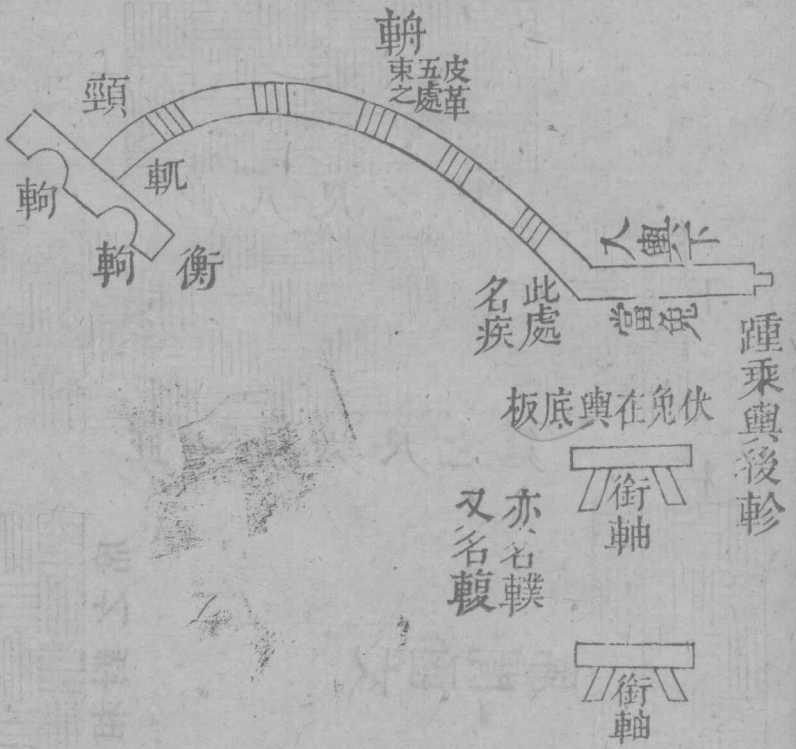 輈
皮革
五處
束之
頸
軏
軥
軥
衡
入輿下
當兔
此處
名疾
踵乘輿後軫
伏兔在輿底板
銜軸
亦名轐
又名輹
銜軸